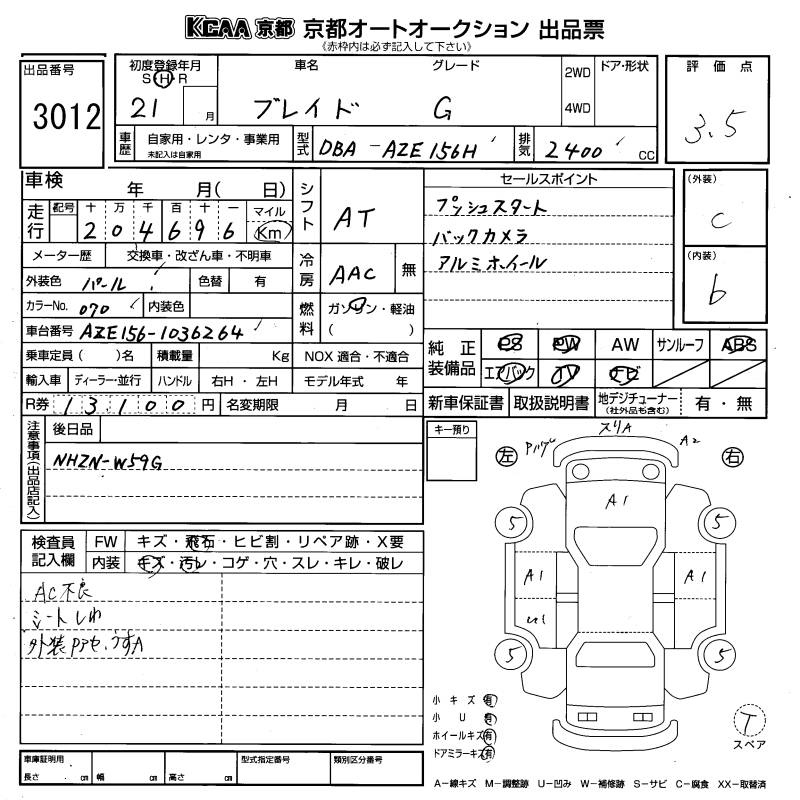 KCAA 京都 京都オートオークション 出品票
《赤枠内は必ず記入して下さい》
出品番号
3012
初度登録年月
S・H・R
21 月
車名
グレード
ブレイド G
2WD
4WD
ドア・形状
評価点
3.5
車歴
自家用・レンタ・事業用
未記入は自家用
型式
DBA-AZE156H
排気
2400 cc
車検
年 月( 日)
走行
記号 十 万 千 百 十 一 マイル
204696 Km
メーター歴 交換車・改ざん車・不明車
外装色 パール 色替 有
カラーNo. 070 内装色
車台番号 AZE156-1036264
乗車定員 ( )名 積載量 Kg
輸入車 ディーラー・並行 ハンドル 右H・左H
R券 13,100 円 名変期限 月 日
シフト
AT
冷房
AAC 無
燃料
ガソリン・軽油
( )
NOX 適合・不適合
モデル年式 年
セールスポイント
プッシュスタート
バックカメラ
アルミホイール
(外装)
C
(内装)
b
純正装備品
PS PW AW サンルーフ ABS
エアバック TV ナビ
新車保証書 取扱説明書 地デジチューナー (社外品も含む) 有・無
注意事項(出品店記入)
後日品
NHZN-W59G
検査員記入欄
FW キズ・飛石・ヒビ割・リペア跡・X要
内装 キズ・汚レ・コゲ・穴・スレ・キレ・破レ
AC不良
シートしわ
外装Pアセ、うすA
キー預り
左
右
スリA
A2
A1
5 5
A1 A1
U1
5 5
小キズ 有
小U 有
ホイールキズ 有
ドアミラーキズ 有
T
スペア
車庫証明用
長さ . cm 幅 cm 高さ cm
型式指定番号
類別区分番号
A―線キズ M―調整跡 U―凹み W―補修跡 S―サビ C―腐食 XX―取替済